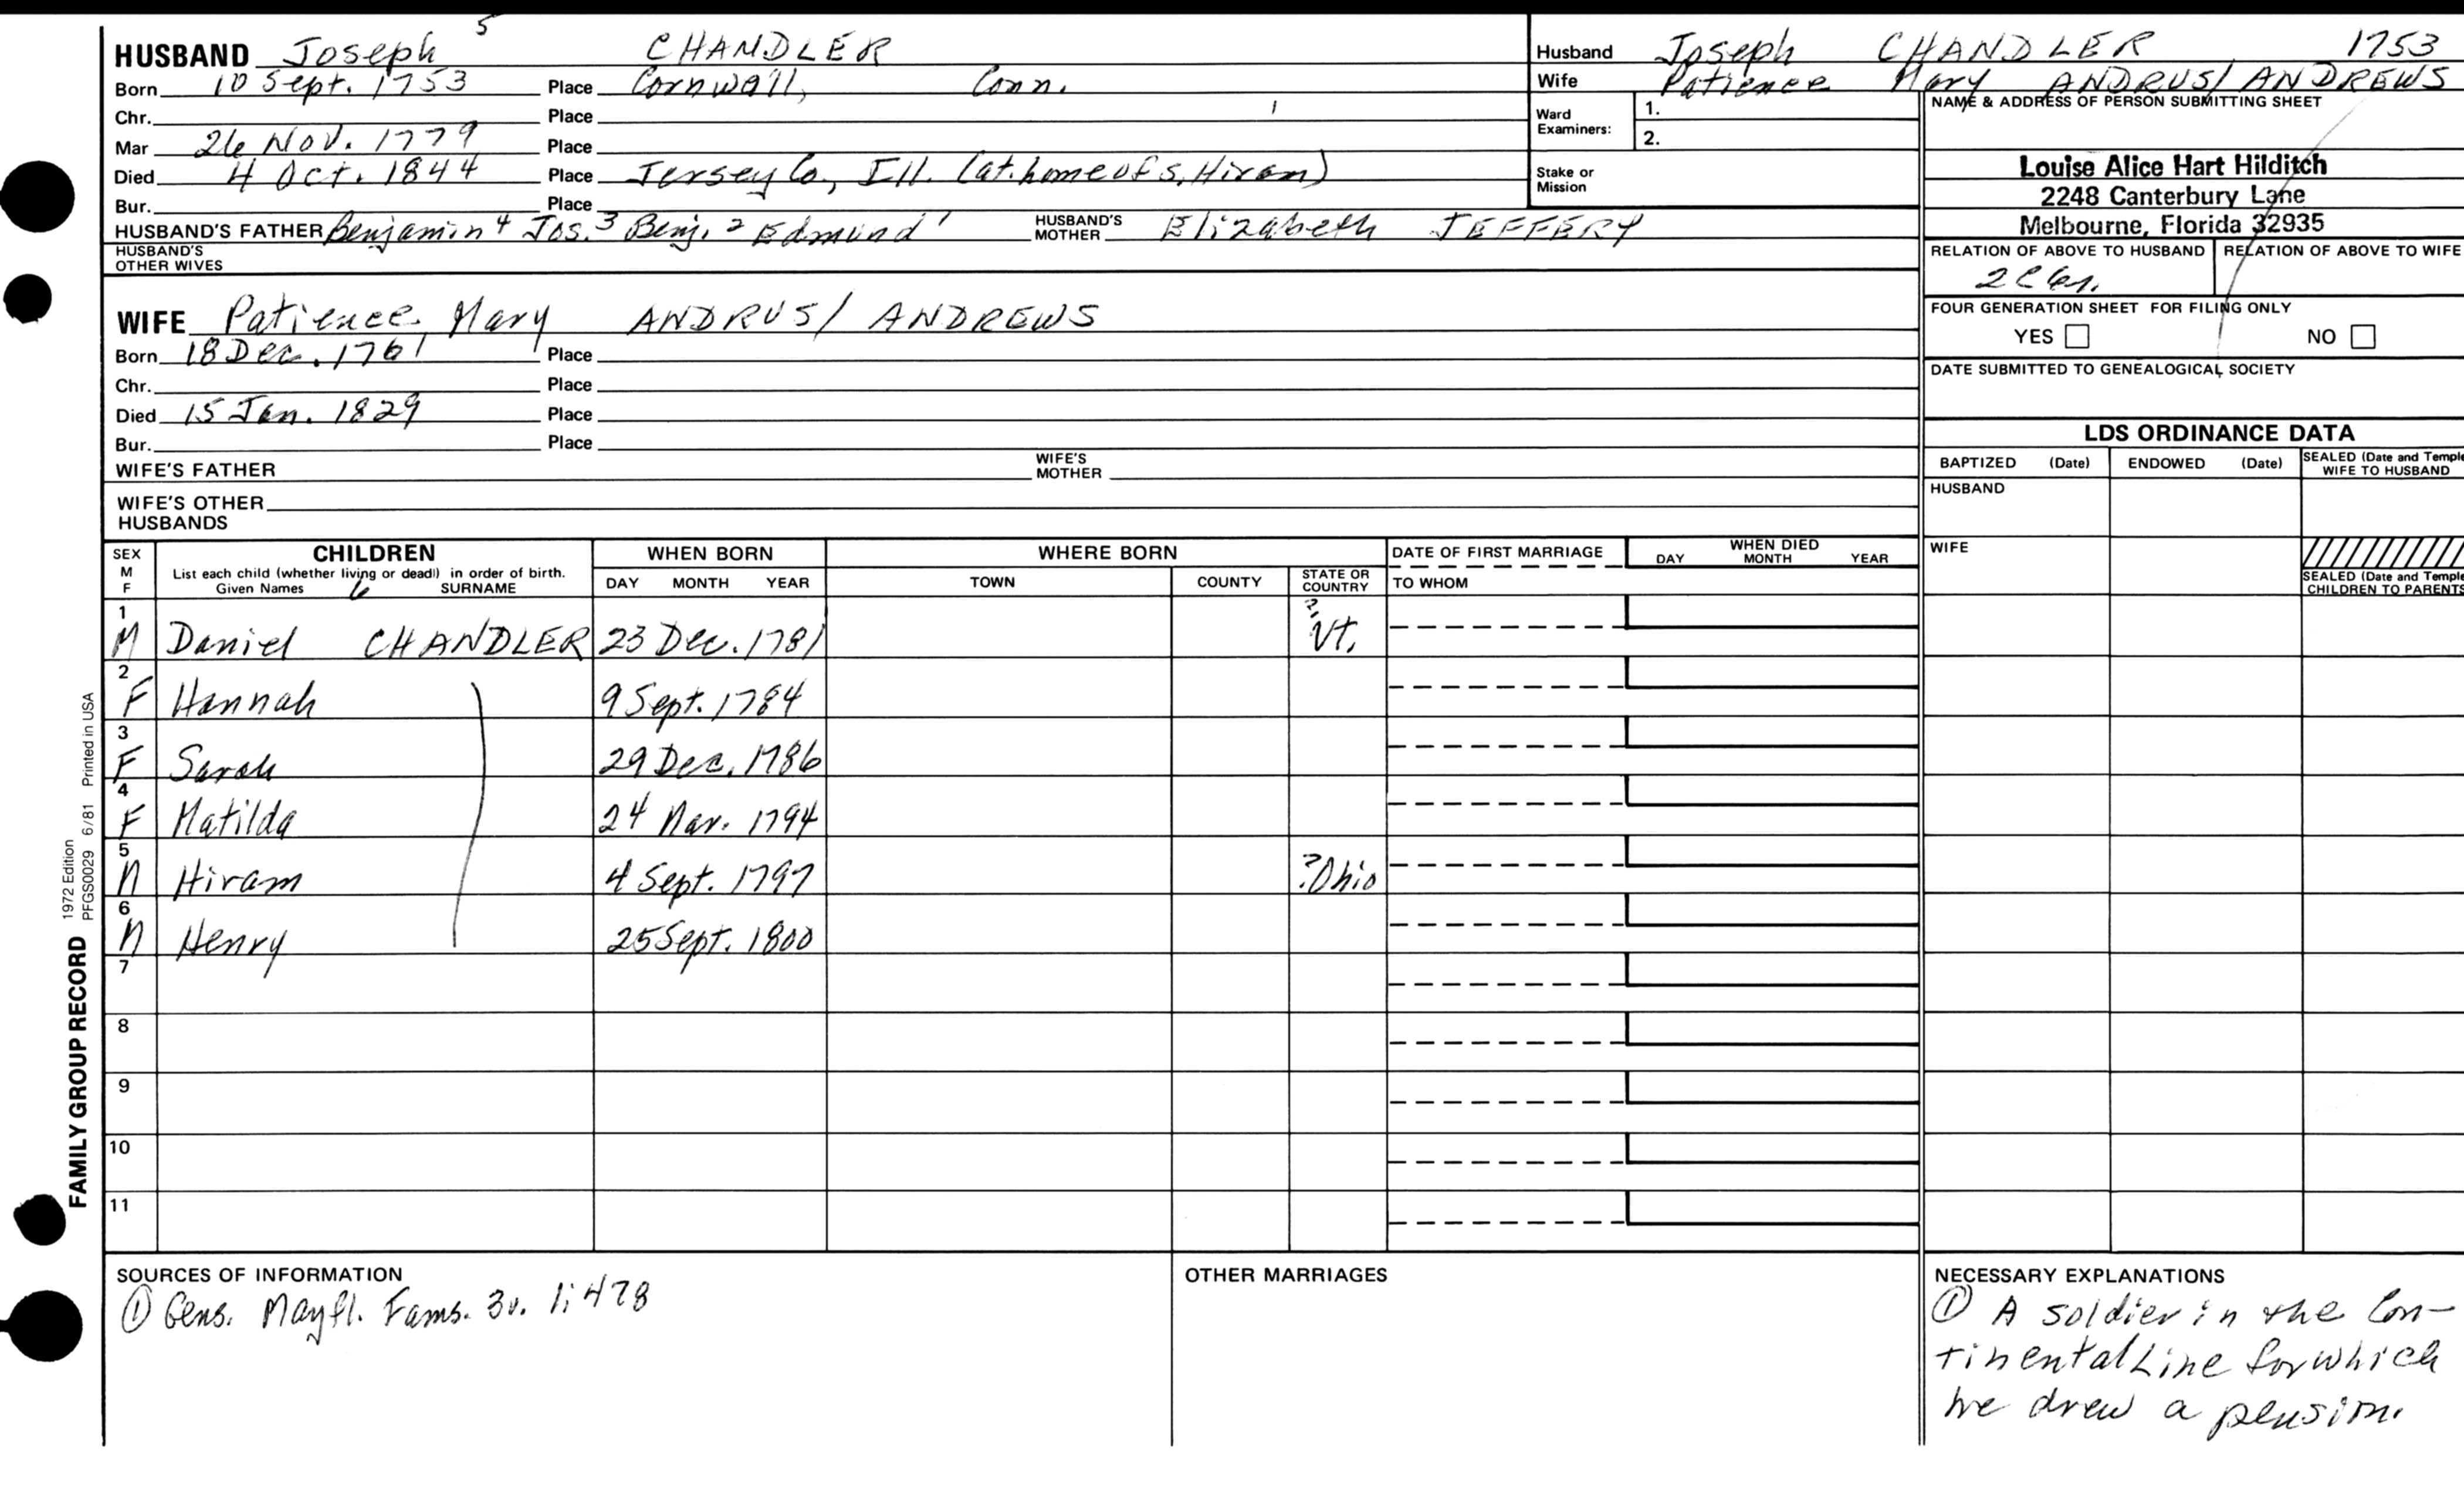 HUSBAND Joseph 5 CHANDLER
Born 10 Sept. 1753 Place Cornwall, Conn.
Chr. Place
Mar 26 Nov. 1779 Place
Died 4 Oct. 1844 Place Jersey Co., Ill. (at home of s. Hiram)
Bur. Place
HUSBAND'S FATHER Benjamin 4 Jos. 3 Benj. 2 Edmund 1 HUSBAND'S MOTHER Elizabeth JEFFERY
HUSBAND'S OTHER WIVES
WIFE Patience Mary ANDRUS/ ANDREWS
Born 18 Dec. 1761 Place
Chr. Place
Died 15 Jan. 1829 Place
Bur. Place
WIFE'S FATHER WIFE'S MOTHER
WIFE'S OTHER HUSBANDS
Husband Joseph CHANDLER 1753
Wife Patience Mary ANDRUS/ ANDREWS
Ward Examiners: 1.
2.
Stake or Mission
NAME & ADDRESS OF PERSON SUBMITTING SHEET
Louise Alice Hart Hilditch
2248 Canterbury Lane
Melbourne, Florida 32935
RELATION OF ABOVE TO HUSBAND RELATION OF ABOVE TO WIFE
FOUR GENERATION SHEET FOR FILING ONLY
YES NO
DATE SUBMITTED TO GENEALOGICAL SOCIETY
LDS ORDINANCE DATA
BAPTIZED (Date) ENDOWED (Date) SEALED (Date and Temple WIFE TO HUSBAND
HUSBAND
WIFE
SEALED (Date and Temple CHILDREN TO PARENTS
SEX M F CHILDREN WHEN BORN WHERE BORN DATE OF FIRST MARRIAGE WHEN DIED
List each child (whether living or dead) in order of birth.
Given Names 6 SURNAME DAY MONTH YEAR TOWN COUNTY STATE OR COUNTRY TO WHOM DAY MONTH YEAR
1 M Daniel CHANDLER 23 Dec. 1781 ? Vt.
2 F Hannah 9 Sept. 1784
3 F Sarah 29 Dec. 1786
4 F Matilda 24 Mar. 1794
5 M Hiram 4 Sept. 1797 ?Ohio
6 M Henry 25 Sept. 1800
7
8
9
10
11
FAMILY GROUP RECORD 1972 Edition
PFGS0029 6/81 Printed in USA
SOURCES OF INFORMATION
① Gens. Mayfl. Fams. 3v. 1:478
OTHER MARRIAGES
NECESSARY EXPLANATIONS
① A soldier in the Con-
tinental Line for which
he drew a pension.